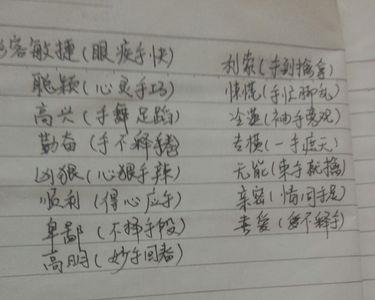 形容敏捷(眼疾手快)
聪颖(心灵手巧)
高兴(手舞足蹈)
勤奋(手不释卷)
凶狠(心狠手辣)
顺利(得心应手)
卑鄙(不择手段)
高明(妙手回春)
利索(手到擒拿)
慌慌(手忙脚乱)
冷漠(袖手旁观)
专横(一手遮天)
无能(束手就擒)
亲密(情同手足)
喜爱(爱不释手)